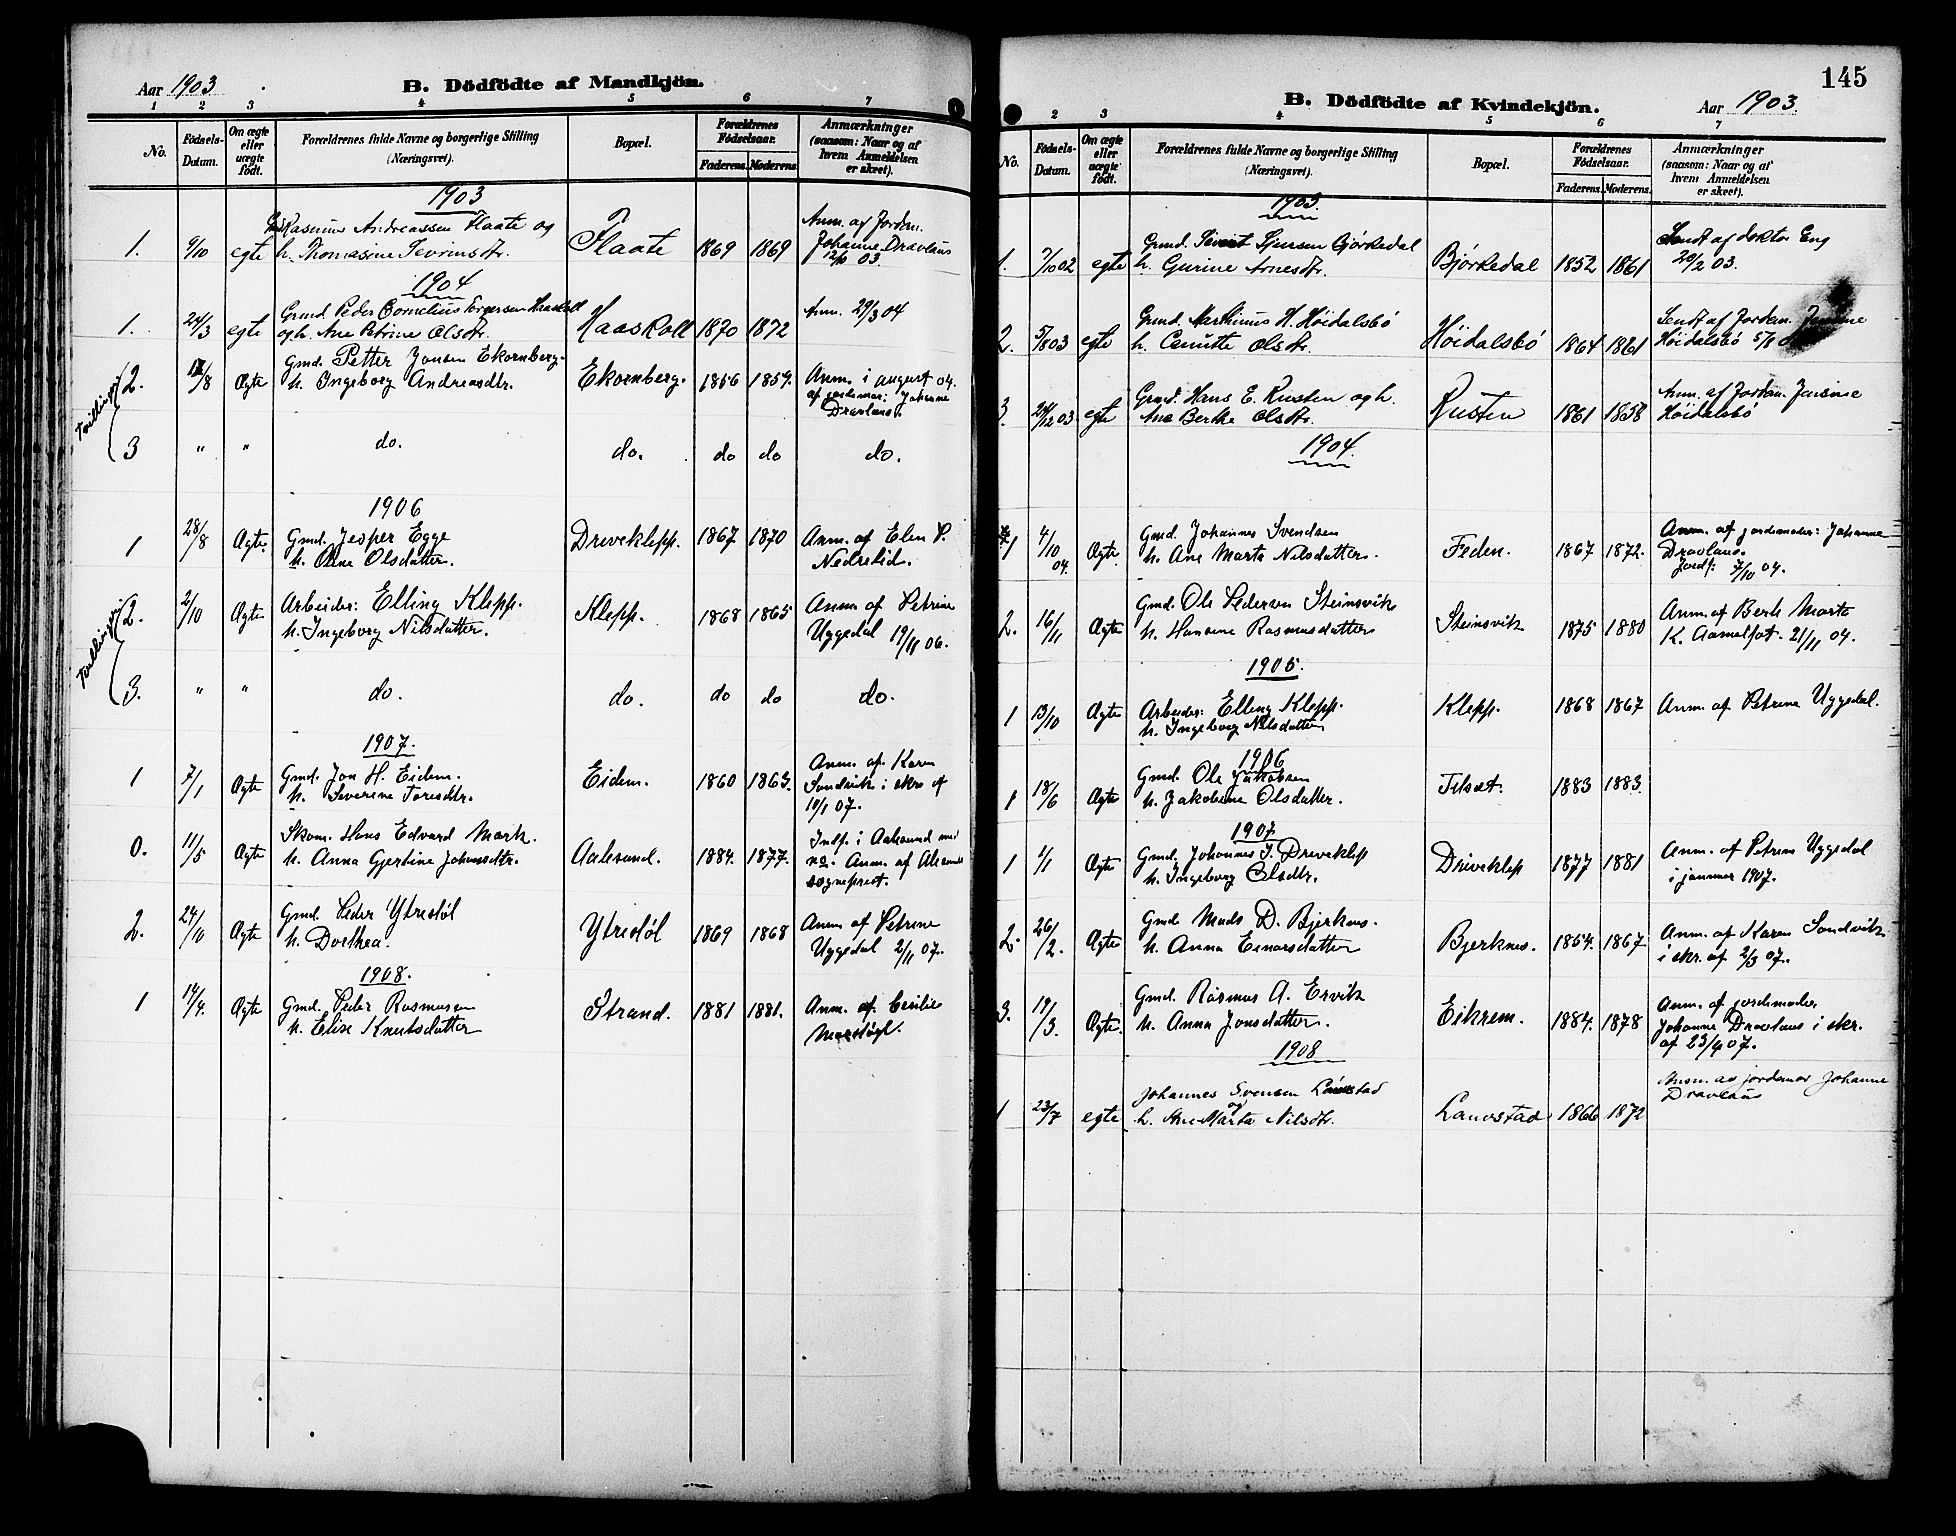 Aar 1903
B. Dödfödte af Mandkjön.
1 2 3 4 5 6 7
No.
Födsels-Datum.
Om ægte eller uægte födt.
Forældrenes fulde Navne og borgerlige Stilling (Næringsvei).
Bopæl.
Forældrenes Födselsaar.
Faderens. Moderens.
Anmærkninger (saasom: Naar og af hvem Anmeldelsen er skeet).
1903
Rasmus Andreassen Flaate og
1. 9/10 egte h. Thomasine Sevrinsdtr. Flaate 1869 1869 Anm. af Jordm.
Johanne Dravlaus
12/10 03.
1904
Grmd Peder Cornelius Torgersen Haaskoll
1. 24/3 egte og h. Ane Petrine Olsdtr. Haaskoll 1870 1872 Anm. 29/3 04
Tvillinger
Gmd. Petter Jonsen Ekornberg.
2. /8 Ægte h. Ingeborg Andreasdtr. Ekornberg. 1856 1859. Anm. i august 04.
af jordemor: Johanne
Dravlaus.
3 " " do. do. do do do.
1906
1 28/8 Ægte. Gmd. Jesper Egge
h. Oline Olsdatter. Driveklepp. 1867 1870 Anm. af Elen P.
Nedrelid.
Tvillinger
2. 2/10 Ægte Arbeider: Elling Klepp.
h. Ingeborg Nilsdatter. Klepp. 1868 1865 Anm. af Petrine
Uggedal 19/11 06.
3. " " do. do. do do do.
1907.
1 7/1 Ægte Gmd. Jon H. Eidem.
h. Severine Toresdtr. Eidem. 1860 1863. Anm. af Karen
Sandvik i skr. af
10/1 07.
0. 11/5 Ægte Skom. Hans Edvard Mork.
h. Anna Gjertine Johansdtr. Aalesund. 1884. 1877. Indf. i Aalesund med
no. Anm. af Alesunds
sogneprest.
2. 24/10 Ægte Gmd. Peder Ytrestøl
h. Dorthea. Ytrestøl 1869 1868 Anm. af Petrine
Uggedal 2/11 07.
1908.
1 14/4. Ægte Gmd. Peder Rasmussen
h. Elise Knutsdatter Strand. 1881 1881. Anm. af Cecilie
145
B. Dödfödte af Kvindekjön.
Aar 1903.
2 3 4 5 6 7
No.
Födsels-Datum.
Om ægte eller uægte födt.
Forældrenes fulde Navne og borgerlige Stilling (Næringsvei).
Bopæl.
Forældrenes Födselsaar.
Faderens. Moderens.
Anmærkninger (saasom: Naar og af hvem Anmeldelsen er skeet).
1903
1. 7/10 02 egte Grmd. Sivert Sjursen Bjørkedal
h. Gurine Arnesdtr. Bjørkedal 1852 1861 Sendt af doktor Eng
20/2 03.
2. 5/8 03 egte Grmd. Marthinus H. Høidalsbø
h. Olsdtr. Høidalsbø 1864 1861 Sendt af Jordm. Jensine
Høidalsbø 5/8
3. 24/12 03 egte Grmd. Hans E. Rusten og h.
Ane Berthe Olsdtr. Rusten 1861 1858 Anm. af Jordm. Jensine
Høidalsbø
1904.
1 4/10 04. Ægte Gmd. Johannes Svendsen
h. Ane Marta Nilsdatter. Feden. 1867 1872. Anm. af jordemoder: Johanne
Dravlaus.
Jordf: 7/10 04.
2. 16/11 Ægte Gmd. Ole Pedersen Steinsvik
h. Hansine Rasmusdatter Steinsvik 1875 1880 Anm. af Berte Marte
K. Aamelfot. 21/11 04.
1905.
1 13/10 Ægte Arbeider: Elling Klepp.
h. Ingeborg Nilsdatter Klepp. 1868 1867 Anm. af Petrine Uggedal.
1906
1 18/6 Ægte Gmd. Ole Jakobsen
h. Jakobine Olsdatter. Tilset. 1883 1883.
1907
1 1/1 Ægte Gmd. Johannes J. Driveklep
h. Ingeborg Olsdtr. Driveklep 1877 1881 Anm. af Petrine Uggedal
i januar 1907.
2. 26/2. Ægte Gmd Mads D. Bjerknes.
h. Anna Einarsdatter Bjerknes. 1854. 1867 Anm. af Karen Sandvik
i skr. af 2/3 07.
3. 19/3. Ægte. Gmd. Rasmus A. Ervik
h. Anna Jonsdatter. Eikrem. 1884. 1878 Anm. af jordemoder
Johanne Dravlaus i skr.
af 23/4 07.
1908
1 23/7 egte Johannes Svensen Lauvstad
og
h. Ane Marta Nilsdtr. Lauvstad 1866 1872 Anm. av jordemor Johanne
Dravlaus